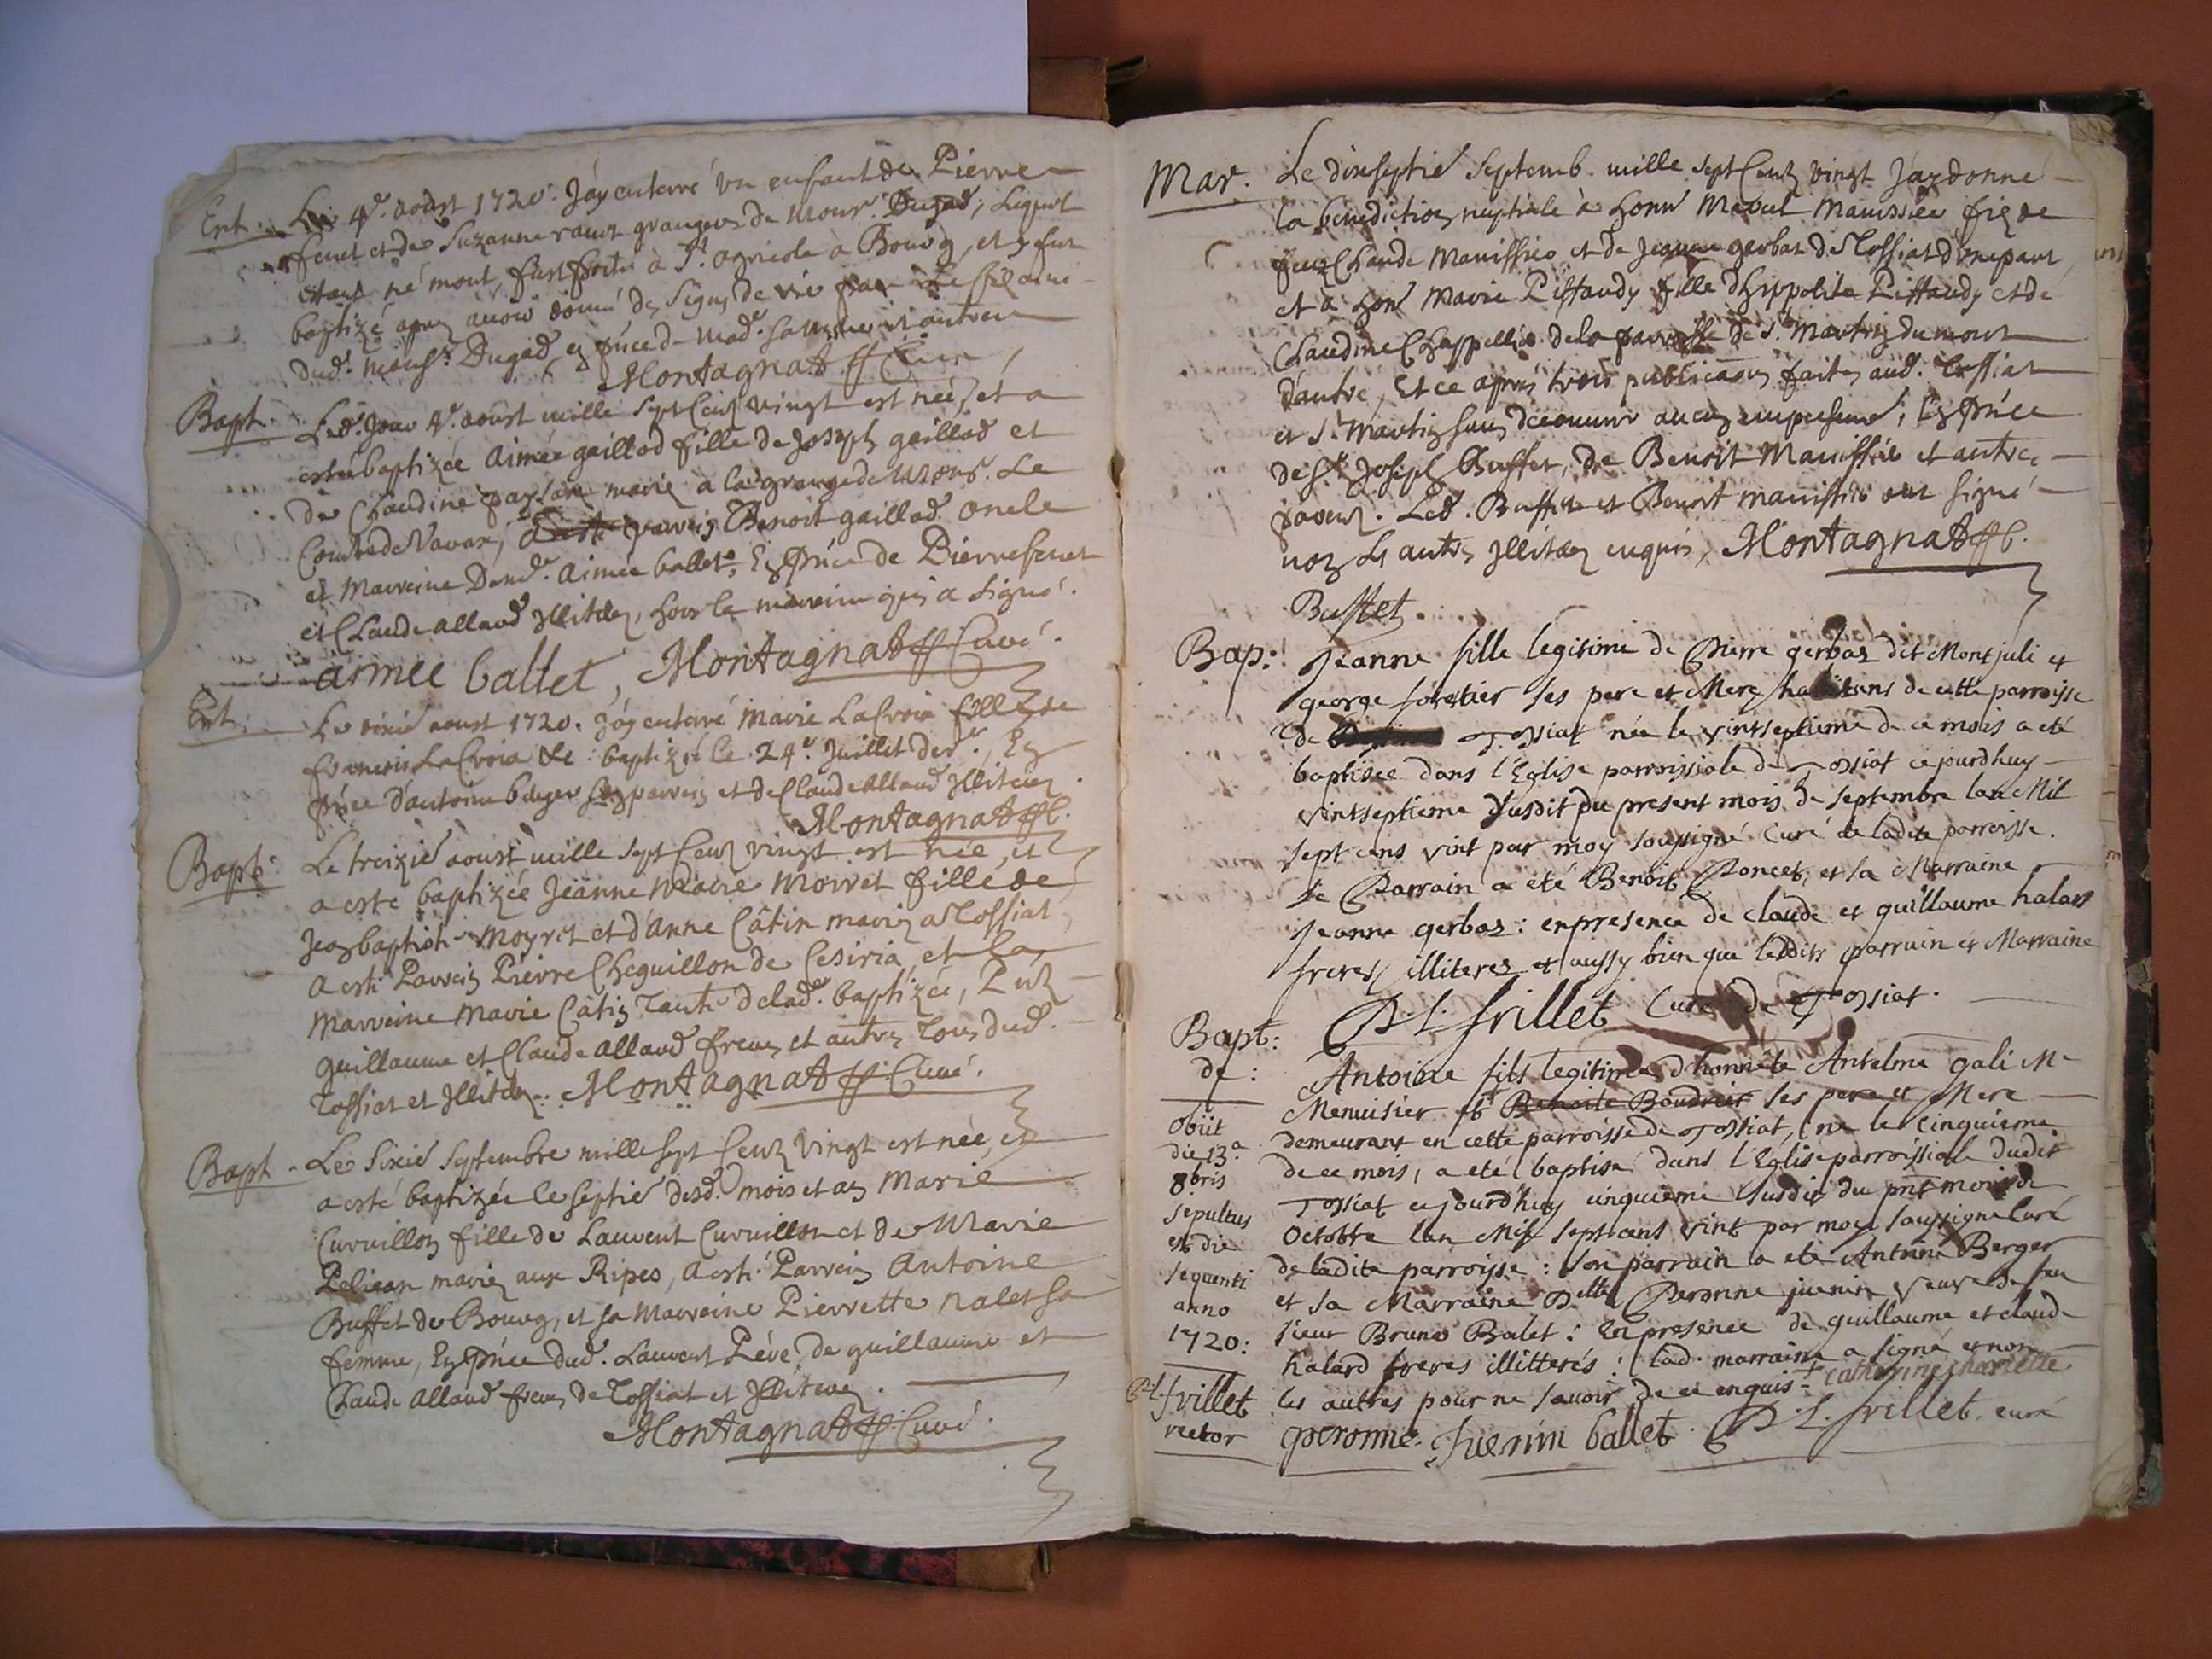 Ent. Le 4e. aoust 1720. J'ay enterré un enfant de Pierre
feret et de Suzanne granger de Monsr. Dugad, Lequel
estant né mort, fust porté à St. agricole à Bourg, et y fut
baptizé apres avoir donné des signes de vie
dud. Monsr. Dugad, en prnce de Made. sa mere et autres
Montagnat Curé
Bapt. Led. Jour 4e. aoust mille sept Centz vingt est née, et a
esté baptizée aimée gaillod fille de Joseph gaillod et
de Claudine paysan mariez a la grange de Monsr. Le
Comte de Varax, parrein Benoit gaillod oncle
et Marreine Demle. aimée ballet, En prnce de Pierre feret
et Claude allard Illiterez, hors la marreine qui a signé.
aimee ballet, Montagnat Curé.
Ent. Le aoust 1720. J'ay enterré Marie LaCroix fille de
francois LaCroix baptizée le 24e. Juillet der., En
prnce d'antoine berger son parrein et de Claude allard Illiterez.
Montagnat C.
Bapt. Le treizie aoust mille sept Centz vingt est née, et
a esté baptizée Jeanne Marie Morret fille de
Jean baptiste Moyret et d'Anne Câtin mariez a Tossiat
a esté Parrein Pierre Cheguillon de Cesiria, et la
Marreine Marie Câtin Tante de lad. baptizée, Prntz
guillaume et Claude allard freres et autres Tous dud.
Tossiat et Illiterez. Montagnat Curé.
Bapt. Le Sixie Septembre mille sept Centz vingt est née, et
a esté baptizée le septie desd. mois et an Marie
Curvillon fille de Laurent Curvillon et de Marie
Pelican mariez aux Ripes, a esté Parrein Antoine
Buffet de Bourg, et sa Marreine Pierrette nalet sa
femme, En prnce dud. Laurent Pére, de guillaume et
Claude allard freres de Tossiat et Illiterez.
Montagnat Curé.
Mar. Le dixseptie Septemb. mille sept Centz vingt J'ay donné
la benediction nuptiale à honn Marcel Manissier filz de
feuz Claude Manissier et de Jeanne gerbat de Tossiat d'une part
et a hon Marie Piffaudy fille d'hippolite Piffaudy et de
Claudine Chappellier de la parroisse de St. Martin du mont
d'autre, Et ce aprés trois publicaons faites aud. Tossiat
et St. Martin sans découvrir aucun empeschemt, En prnce
de Sr. Joseph Buffet, de Benoit Manissier et autres
parens. Led. Buffet et Benoit manissier ont signé
non Les autres Illiterez enquis, Montagnat C.
Buffet.
Bap: Jeanne fille legitime de Pierre gerbaz dit Montjuli et
george forestier ses pere et Mere habitans de cette parroisse
de Tossiat née le vintseptieme de ce mois a eté
baptisée dans l'Eglise parroissiale de Tossiat cejourdhuy
vintseptieme susdit du present mois de septembre lan Mil
sept cens vint par moy soussigné Curé de ladite parroisse.
le Parrain a eté Benoit Poncet, et la Marraine
Jeanne gerbaz: en presence de claude et guillaume halard
freres illiteres et aussy bien que lesdits parrain et Marraine
P. L. frillet Curé de Tossiat.
Bapt: de: Antoine fils legitime d'honnête Antelme gali M
Menuisier et Benoite Boudrier ses pere et Mere
demeurant en cette parroisse de Tossiat, né le cinquieme
de ce mois, a eté baptisé dans l'Eglise parroissiale dudit
Tossiat cejourdhuy cinquieme susdit du pnt mois de
Octobre lan Mil septcens vint par moy soussigné Curé
de ladite parroisse: son parrain a eté Antoine Berger
et sa Marraine Dlle Peronne juenin veuve de feu
sieur Bruno Balet: En presence de guillaume et claude
halard freres illitterés: lad. marraine a signé et non
les autres pour ne savoir de ce enquis. + catherine charlette
peronne Juenin ballet. P. L. frillet curé
obiit
die 13a
8bris
sepultus
est die
sequenti
anno
1720:
P. L. frillet
rector